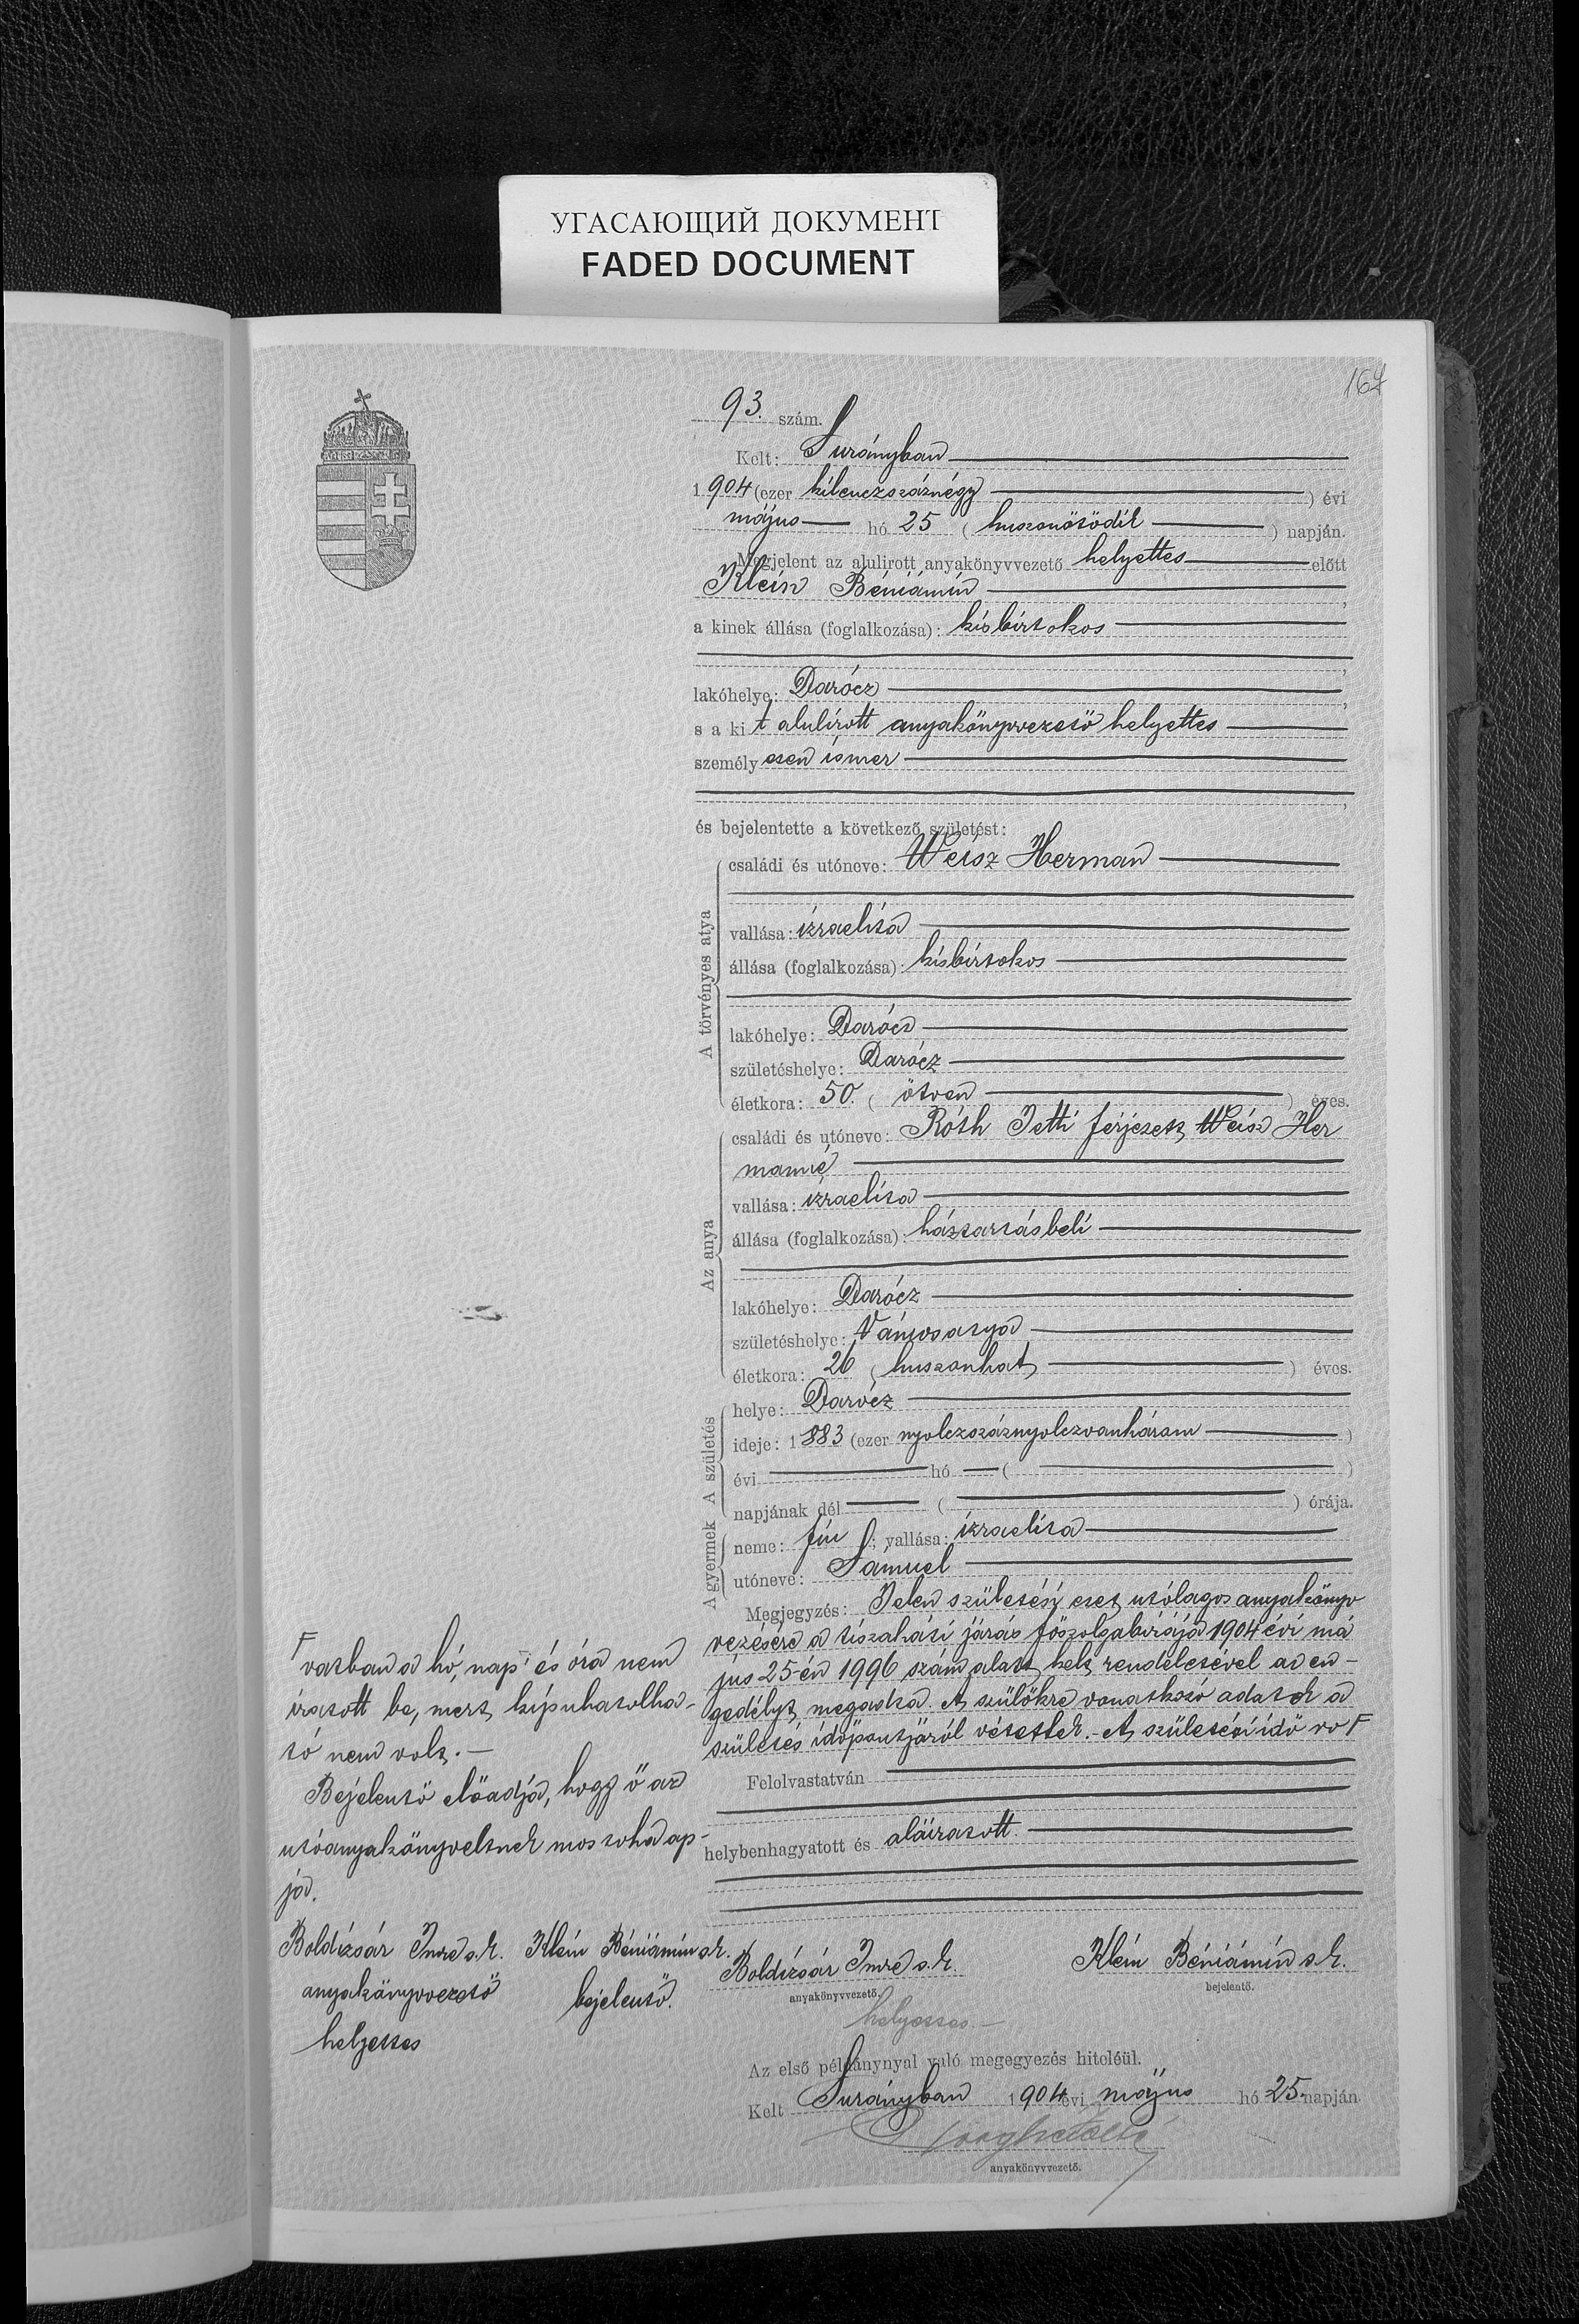 УГАСАЮЩИЙ ДОКУМЕНТ
FADED DOCUMENT
167
93. szám.
Kelt: Surányban
1904 (ezer kilenczszáznégy) évi
május hó 25 (huszonötödik) napján.
Megjelent az alulirott anyakönyvvezető helyettes előtt
Klein Béniámin,
a kinek állása (foglalkozása): kisbirtokos
,
lakóhelye: Darócz,
s a kit alulírott anyakönyvvezető helyettes
személyesen ismer
,
és bejelentette a következő születést:
A törvényes atya
családi és utóneve: Weisz Herman
vallása: izraelita
állása (foglalkozása): kisbirtokos
lakóhelye: Darócz
születéshelye: Darócz
életkora: 50. (ötven) éves.
Az anya
családi és utóneve: Róth Jetti férjezett Weisz Her
manné
vallása: izraelita
állása (foglalkozása): háztartásbeli
lakóhelye: Darócz
születéshelye: Vámosatya
életkora: 26 (huszonhat) éves.
A születés
helye: Darócz
ideje: 1883 (ezer nyolczszáznyolczvanhárom)
évi hó ( )
napjának dél ( ) órája.
A gyermek
neme: fiu; vallása: izraelita
utóneve: Sámuel
Megjegyzés: Jelen születési eset utólagos anyakönyv
vezésére a tiszaháti járás főszolgabirája 1904 évi má
jus 25-én 1996 szám alatt kelt rendeletével az en-
gedélyt megadta. A szülőkre vonatkozó adatok a
születés időpontjáról vétettek. - A születési idő ro F
F vatban a hó, nap és óra nem
iratott be, mert kipuhatolha-
tó nem volt. -
Bejelentő előadja, hogy ő az
utóanyakönyveltnek mostoha ap-
ja.
Boldizsár Imre s.k. Klein Béniámin s.k.
anyakönyvvezető bejelentő.
helyettes
Felolvastatván
helbenhagyatott és aláiratott.
Boldizsár Imre s.k. Klein Béniámin s.k.
anyakönyvvezető. bejelentő.
helyettes. -
Az első példánynyal való megegyezés hiteléül.
Kelt Surányban 1904 évi május hó 25. napján.
anyakönyvvezető.